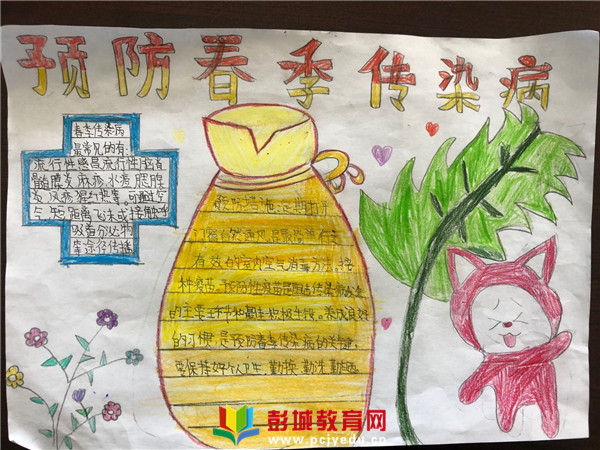 预防春季传染病
春季传染病
最常见的有:
流行性感冒流行性脑脊
髓膜炎麻疹水痘腮腺
炎风疹猩红热等,可通过空
气短距离飞沫或接触呼
吸道分泌物
等途径传播
预防措施:定期打开
门窗自然通风是最
有效的室内空气消毒方法,接
种疫苗,预防性疫苗是阻击传染病发生
的主要
积极手段。养成良好
的习惯,是预防春季传染病的关键,
要保持好个人卫生,勤换勤洗勤
彭城教育网
www.pcjyedu.cn